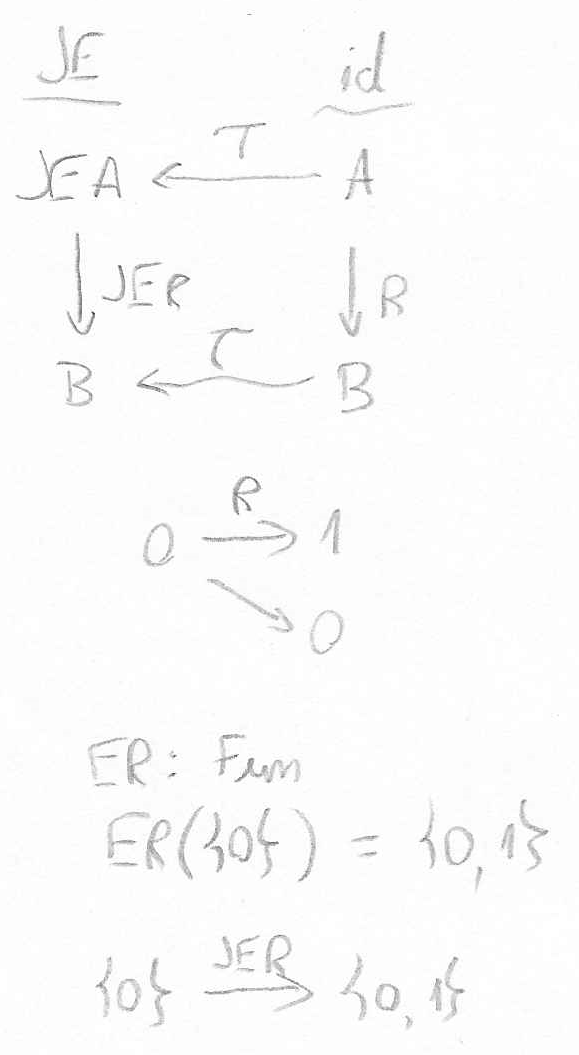 JE id
JEA ← T A
↓ JER ↓ R
B ← τ B
0 →R 1
↘ 0
ER: Fun
ER({0}) = {0,1}
{0} →JER {0,1}